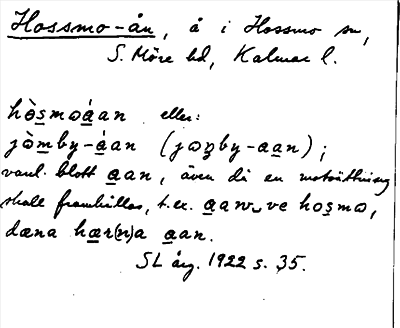 Hossmo-ån, å i Hossmo sn,
S. Möre hd, Kalmar l.
hòsmoáan eller:
jòmby-áan (joŋby-aan);
vanl. blott aan, även då en motsättning
skall framhållas, t.ex. aan ve hosmo,
dæna hær(n)a aan.
SL årg. 1922 s. 35.